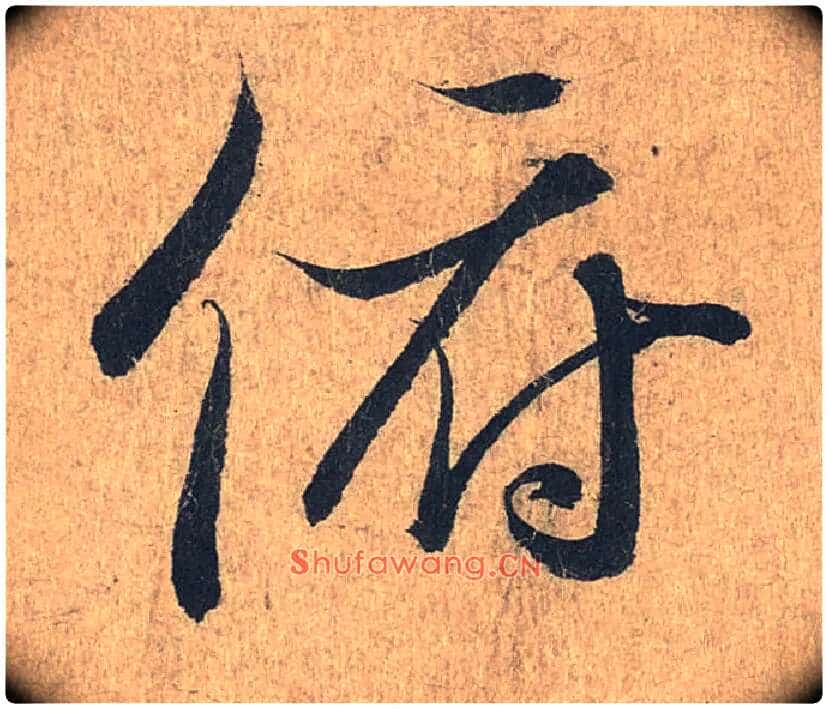 俯
Shufawang.CN